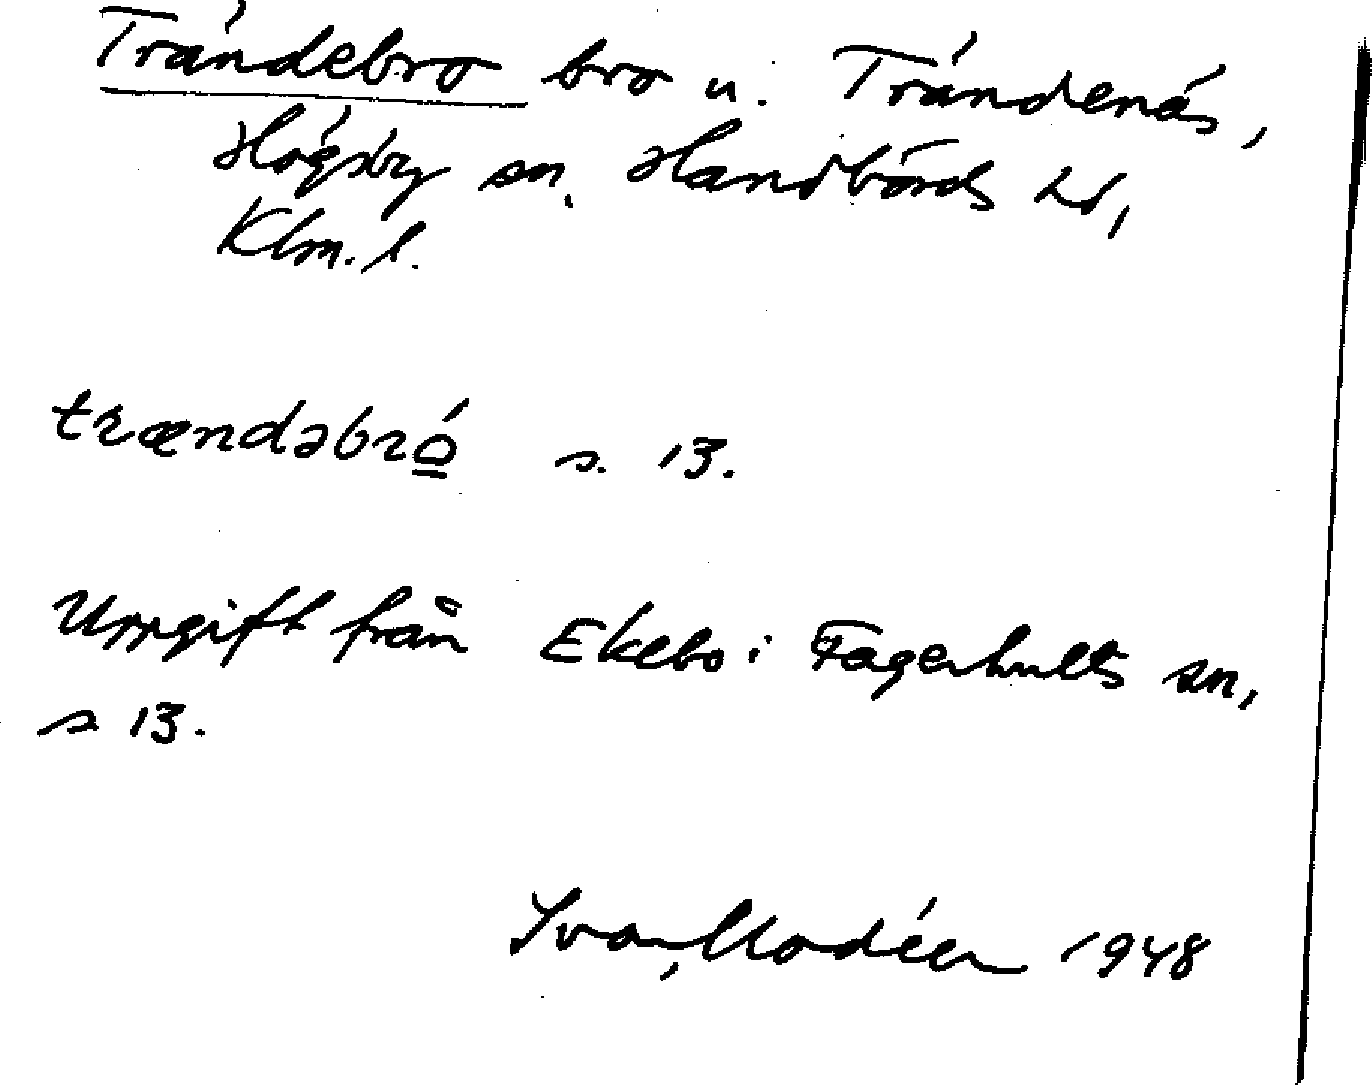 Trändebro bro u. Trändenäs,
Högsby sn. Handbörds hd,
Klm. l.
trændəbró̱ s. 13.
Uppgift från Ekebo i Fagerhults sn,
s 13.
Ivar Modéer 1948